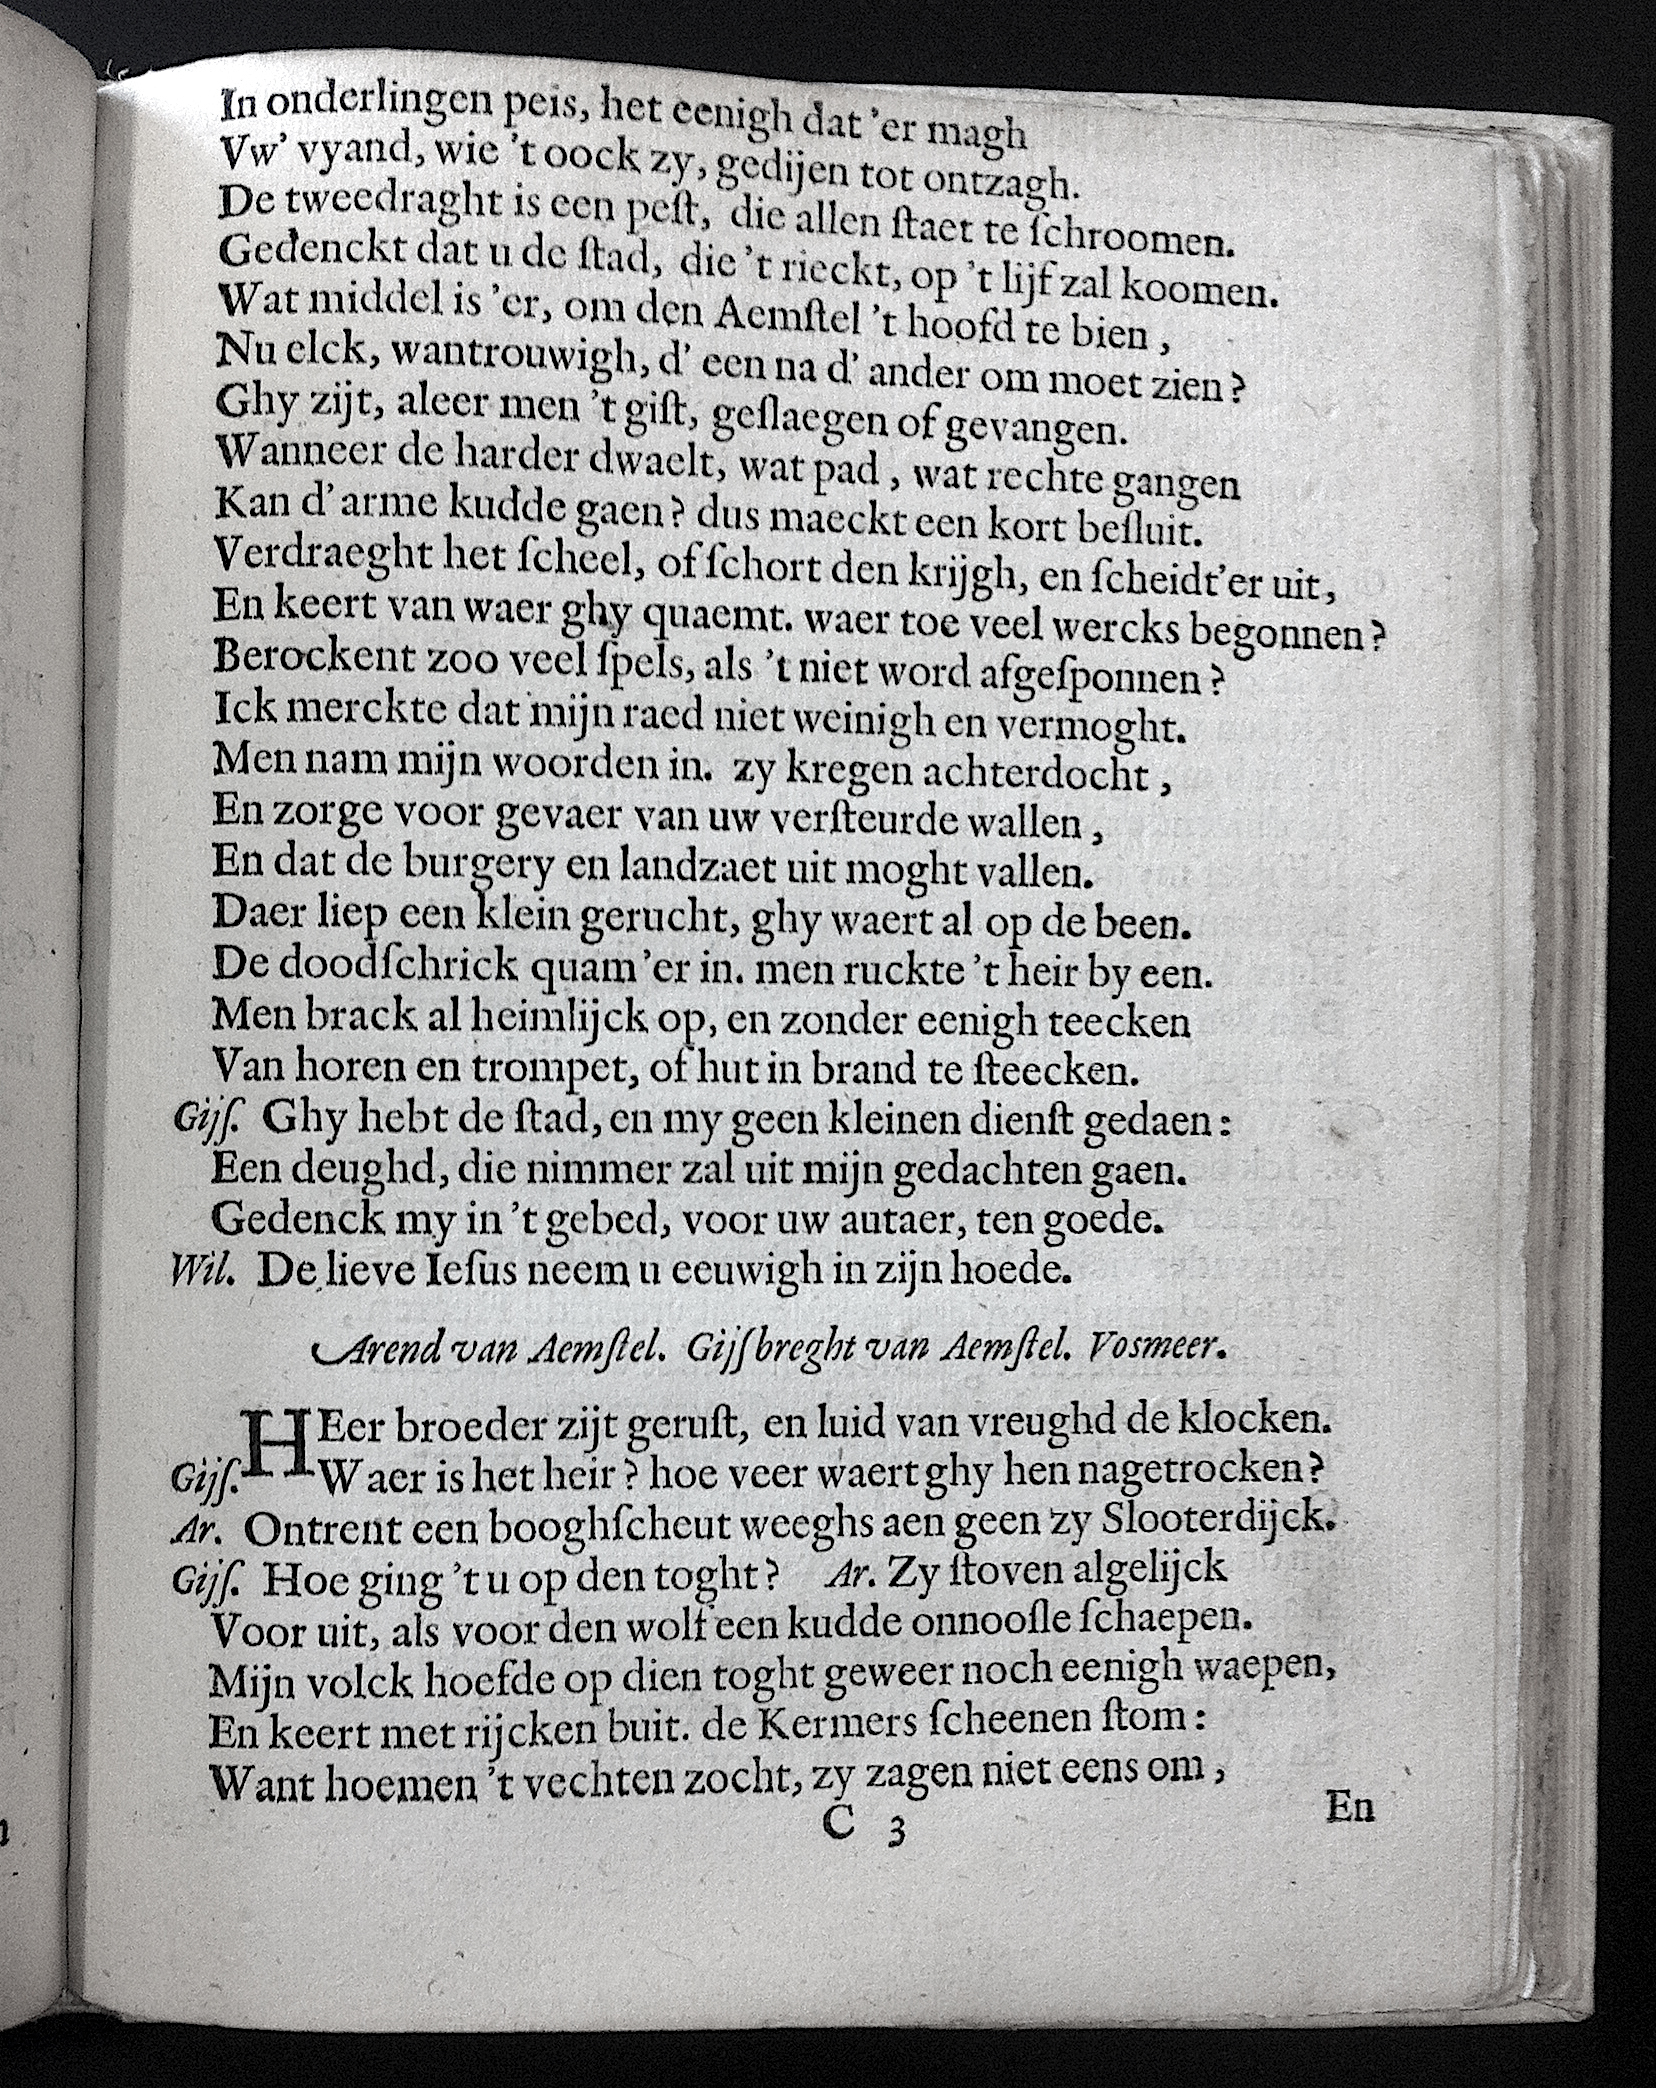 In onderlingen peis, het eenigh dat 'er magh
Vw' vyand, wie 't oock zy, gedijen tot ontzagh.
De tweedraght is een peſt, die allen ſtaet te ſchroomen.
Gedenckt dat u de ſtad, die 't rieckt, op 't lijf zal koomen.
Wat middel is 'er, om den Aemſtel 't hoofd te bien,
Nu elck, wantrouwigh, d' een na d' ander om moet zien?
Ghy zijt, aleer men 't giſt, geſlaegen of gevangen.
Wanneer de harder dwaelt, wat pad, wat rechte gangen
Kan d' arme kudde gaen? dus maeckt een kort beſluit.
Verdraeght het ſcheel, of ſchort den krijgh, en ſcheidt'er uit,
En keert van waer ghy quaemt. waer toe veel wercks begonnen?
Berockent zoo veel ſpels, als 't niet word afgeſponnen?
Ick merckte dat mijn raed niet weinigh en vermoght.
Men nam mijn woorden in. zy kregen achterdocht,
En zorge voor gevaer van uw verſteurde wallen,
En dat de burgery en landzaet uit moght vallen.
Daer liep een klein gerucht, ghy waert al op de been.
De doodſchrick quam 'er in. men ruckte 't heir by een.
Men brack al heimlijck op, en zonder eenigh teecken
Van horen en trompet, of hut in brand te ſteecken.
Gijſ. Ghy hebt de ſtad, en my geen kleinen dienſt gedaen:
Een deughd, die nimmer zal uit mijn gedachten gaen.
Gedenck my in 't gebed, voor uw autaer, ten goede.
Wil. De lieve Ieſus neem u eeuwigh in zijn hoede.
Arend van Aemſtel. Gijſbreght van Aemſtel. Vosmeer.
HEer broeder zijt geruſt, en luid van vreughd de klocken.
Gijſ. Waer is het heir? hoe veer waert ghy hen nagetrocken?
Ar. Ontrent een booghſcheut weeghs aen geen zy Slooterdijck.
Gijſ. Hoe ging 't u op den toght? Ar. Zy ſtoven algelijck
Voor uit, als voor den wolf een kudde onnooſle ſchaepen.
Mijn volck hoefde op dien toght geweer noch eenigh waepen,
En keert met rijcken buit. de Kermers ſcheenen ſtom:
Want hoemen 't vechten zocht, zy zagen niet eens om,
C 3
En